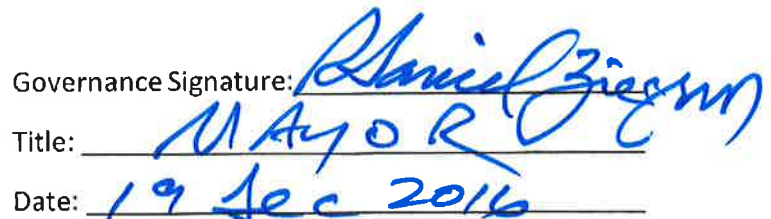 Governance Signature: R Daniel
Title: MAYOR
Date: 19 Dec 2016